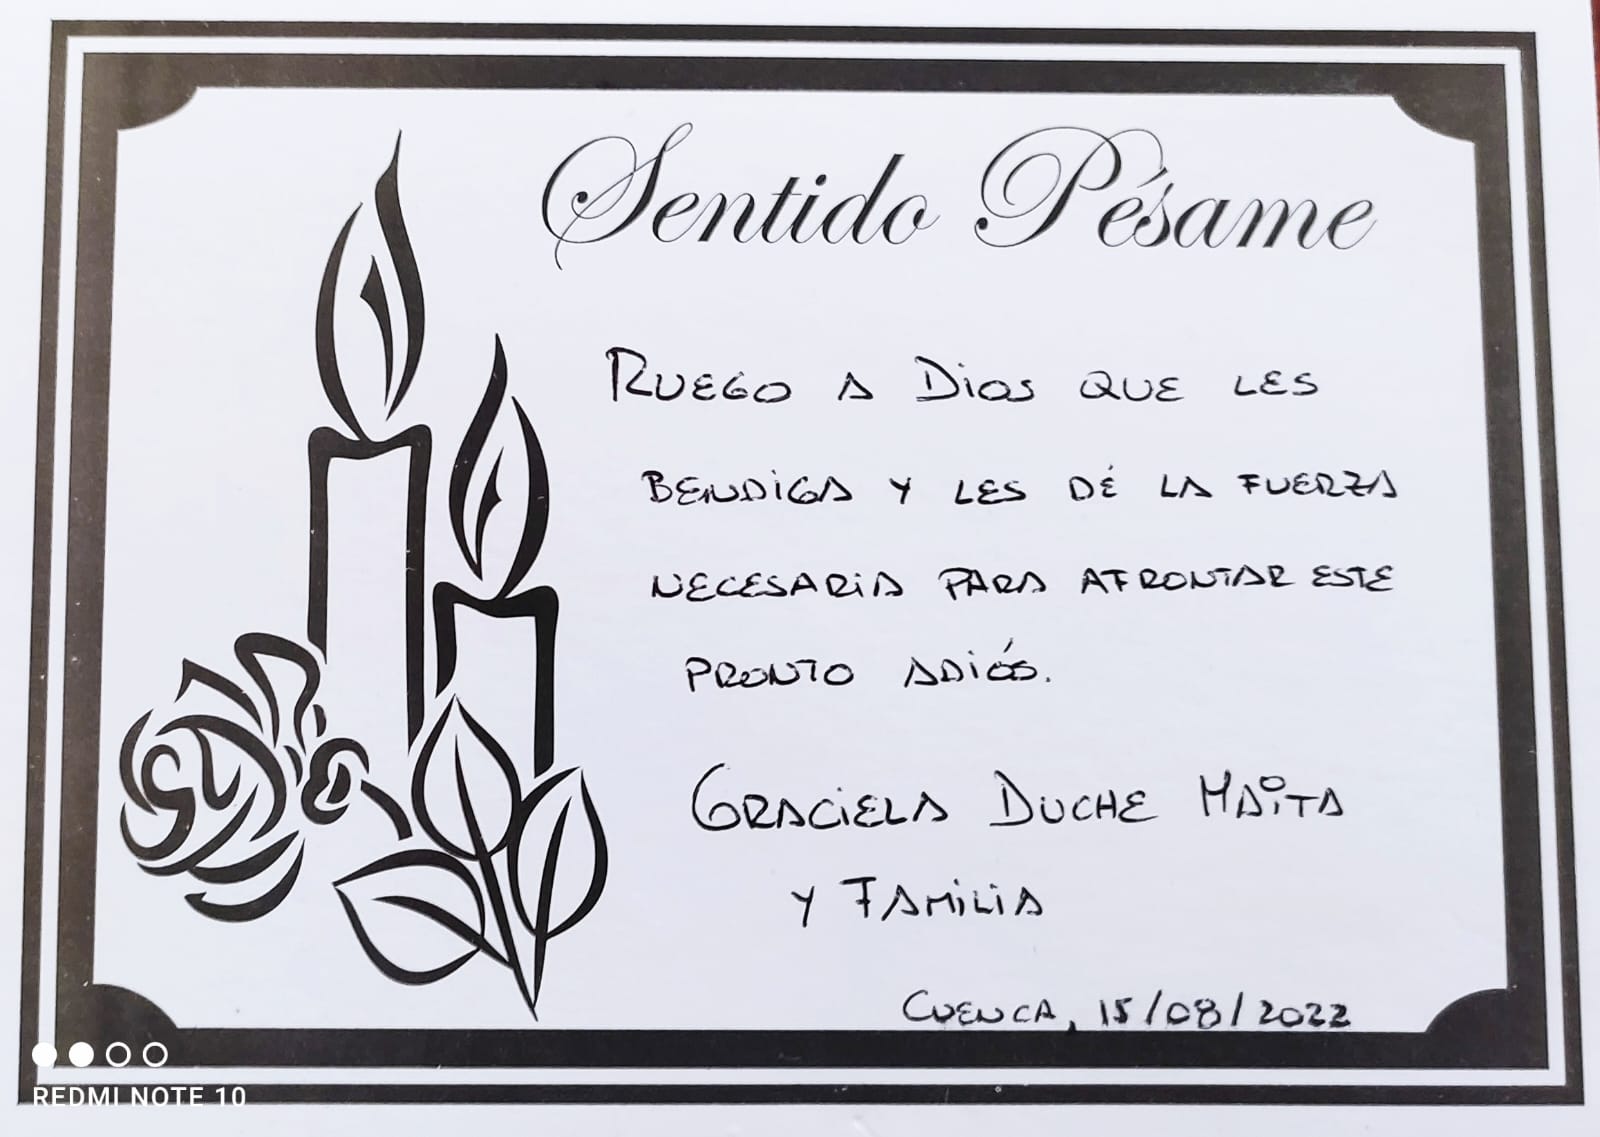 Sentido Pésame
RUEGO A DIOS QUE LES
BENDIGA Y LES DÉ LA FUERZA
NECESARIA PARA AFRONTAR ESTE
PRONTO ADIÓS.
GRACIELA DUCHE MAITA
Y FAMILIA
CUENCA, 15/08/2022
REDMI NOTE 10